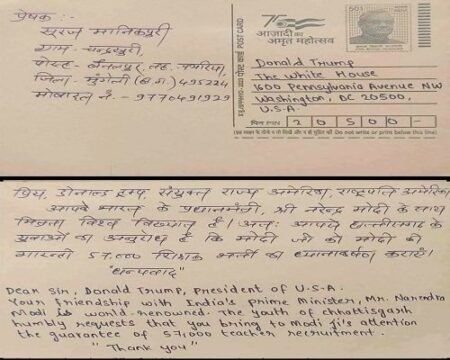 प्रेषक :-
सूरज मानिकपुरी
ग्राम - चन्द्रपुरी,
जिला - मुंगेली (छ.ग.) 495224
मोबाइल नं - 9770491929
75
आज़ादी का
अमृत महोत्सव
पोस्ट कार्ड POST CARD
Donald Trump
The White House
1600 Pennsylvania Avenue NW
Washington, DC 20500,
U.S.A.
पिन PIN 2 0 5 0 0 -
(इस लाइन के नीचे न लिखें और न ही मुद्रित करें Do not write or print below this line)
प्रिय, डोनाल्ड ट्रम्प, संयुक्त राज्य अमेरिका, राष्ट्रपति अमेरिका
आपके भारत के प्रधानमंत्री, श्री नरेन्द्र मोदी के साथ
मित्रता विश्व विख्यात है। अतः आपसे छत्तीसगढ़ के
युवाओं का अनुरोध है कि मोदी जी को मोदी की
गारन्टी 57,000 शिक्षक भर्ती का ध्यानाकर्षण कराएं।
"धन्यवाद"
Dear Sir, Donald Trump, President of U.S.A.
Your friendship with India's prime Minister, Mr. Narendra
Modi is world-renowned. The youth of chhattisgarh
humbly requests that you bring to Modi Ji's attention
the guarantee of 57,000 teacher recruitment.
"Thank you"